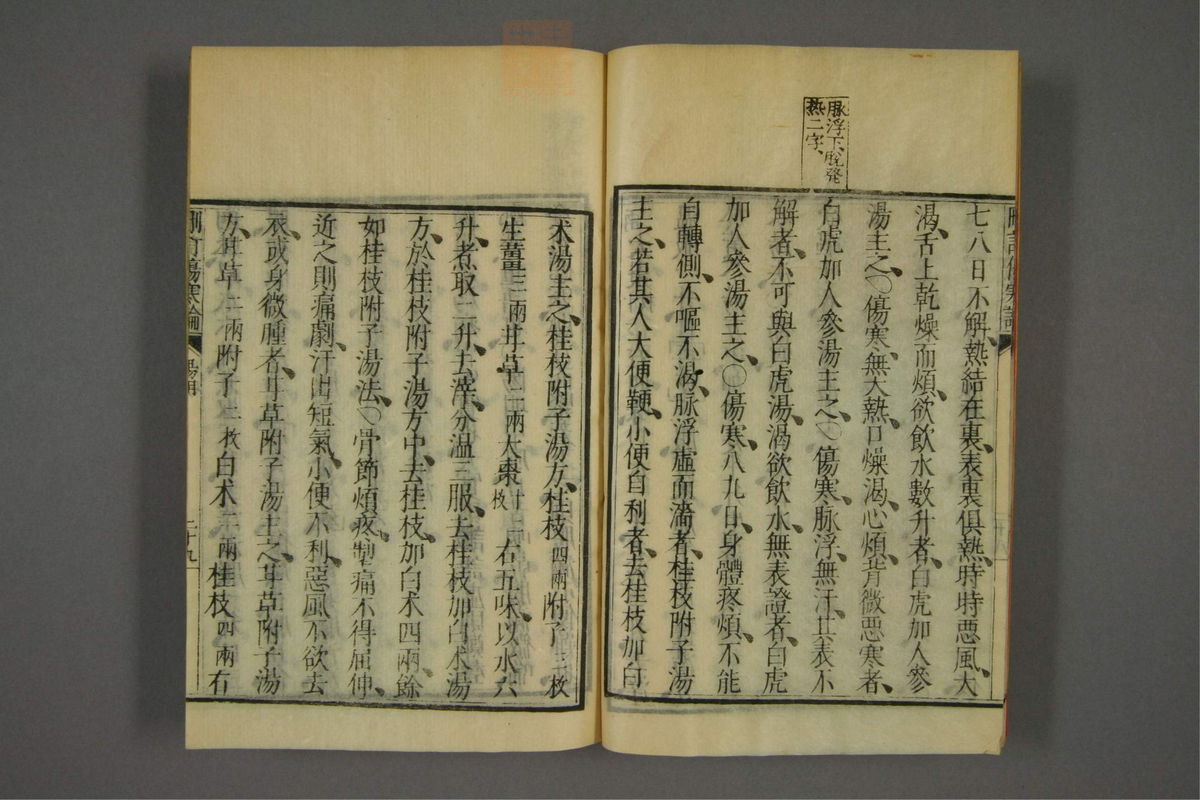 脉浮下脱発
热二字、
七八日不解、熱結在裏、表裏俱熱、時時惡風、大
渴、舌上乾燥而煩、欲飲水數升者、白虎加人參
湯主之、○傷寒、無大熱、口燥渴、心煩、背微惡寒者、
白虎加人參湯主之、○傷寒、脉浮、無汗、其表不
解者、不可與白虎湯、渴欲飲水、無表證者、白虎
加人參湯主之、○傷寒、八九日、身體疼煩、不能
自轉側、不嘔不渴、脉浮虛而濇者、桂枝附子湯
主之、若其人大便鞕、小便自利者、去桂枝加白
术湯主之、桂枝附子湯方、桂枝四兩附子三枚
生薑三兩甘草二兩大棗十二枚右五味、以水六
升、煮取二升、去滓、分温三服、去桂枝加白术湯
方、於桂枝附子湯方中、去桂枝、加白术四兩、餘
如桂枝附子湯法、○骨節煩疼、掣痛不得屈伸、
近之則痛劇、汗出短氣、小便不利、惡風不欲去
衣、或身微腫者、甘草附子湯主之、甘草附子湯
方、甘草二兩附子二枚白术二兩桂枝四兩右
刪訂傷寒論
陽明
二十九